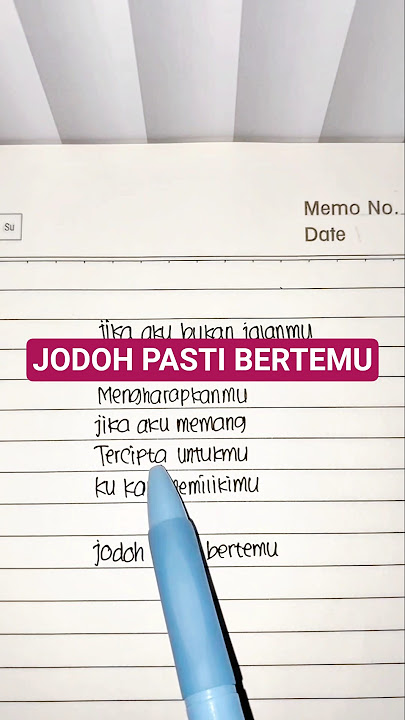 Su
Memo No.
Date
jika aku bukan jalanmu
JODOH PASTI BERTEMU
Mengharapkanmu
jika aku memang
Tercipta untukmu
ku ka memilikimu
jodoh bertemu